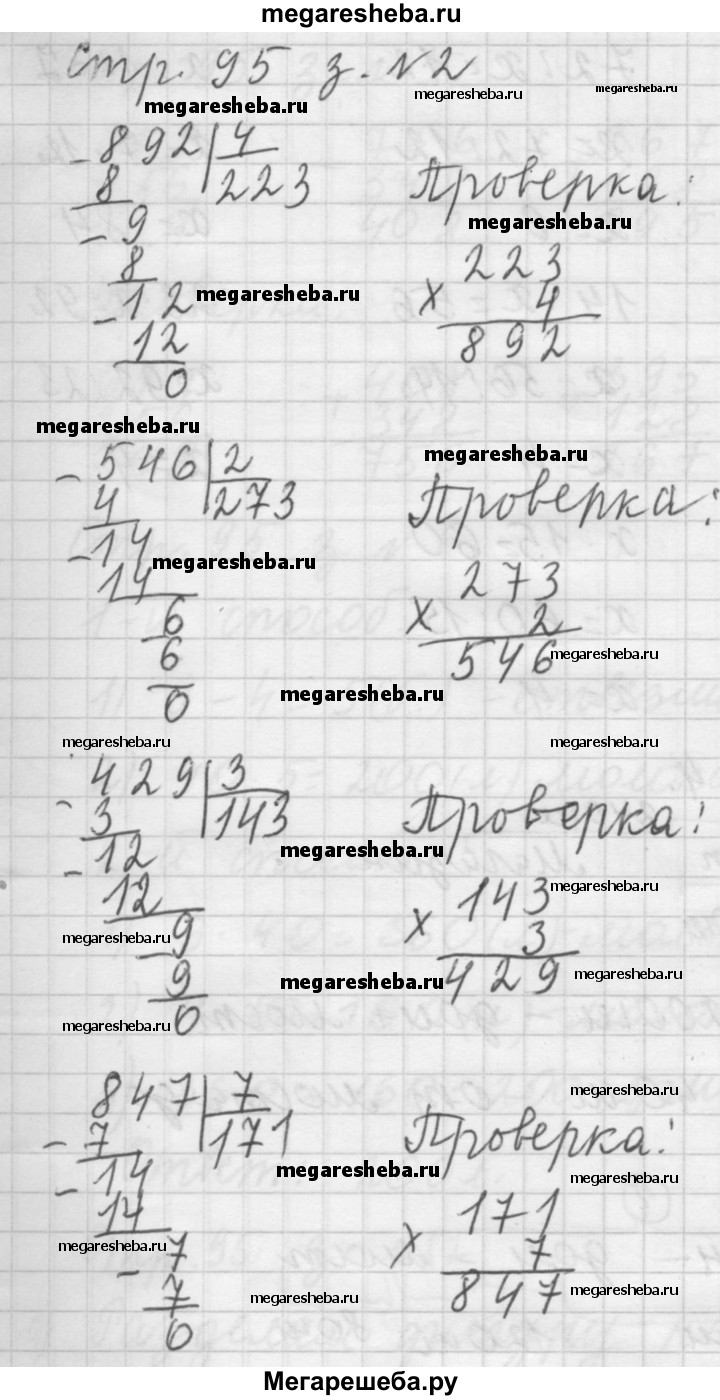 megaresheba.ru
Стр. 95 з. №2
megaresheba.ru megaresheba.ru megaresheba.ru
- 892 | 4
8 | 223 Проверка:
- 9 megaresheba.ru
8 223
- 12 megaresheba.ru × 4
12 892
0
megaresheba.ru megaresheba.ru
- 546 | 2
4 | 273 Проверка:
- 14 megaresheba.ru
14 273
6 × 2
6 546 megaresheba.ru
0 megaresheba.ru
megaresheba.ru megaresheba.ru
- 429 | 3
3 | 143 Проверка:
- 12 megaresheba.ru
12 143 megaresheba.ru
megaresheba.ru - 9 × 3
9 megaresheba.ru 429 megaresheba.ru
megaresheba.ru 0
847 | 7 megaresheba.ru
- 7 | 171 Проверка:
- 14 megaresheba.ru megaresheba.ru
14 171
megaresheba.ru - 7 × 7
7 megaresheba.ru 847 megaresheba.ru
0
Мегарешеба.ру